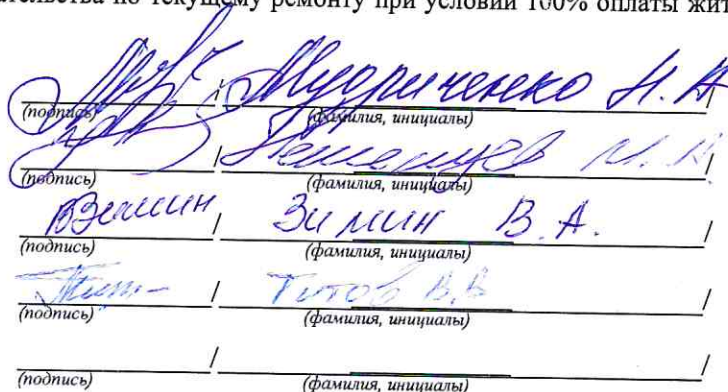 тельства по текущему ремонту при условии 100% оплаты жит
/ Мудриченко Н. А /
(подпись) (фамилия, инициалы)
/ /
(подпись) (фамилия, инициалы)
ВЗимин / Зимин В. А. /
(подпись) (фамилия, инициалы)
Тит- / Титов В.В /
(подпись) (фамилия, инициалы)
/ /
(подпись) (фамилия, инициалы)